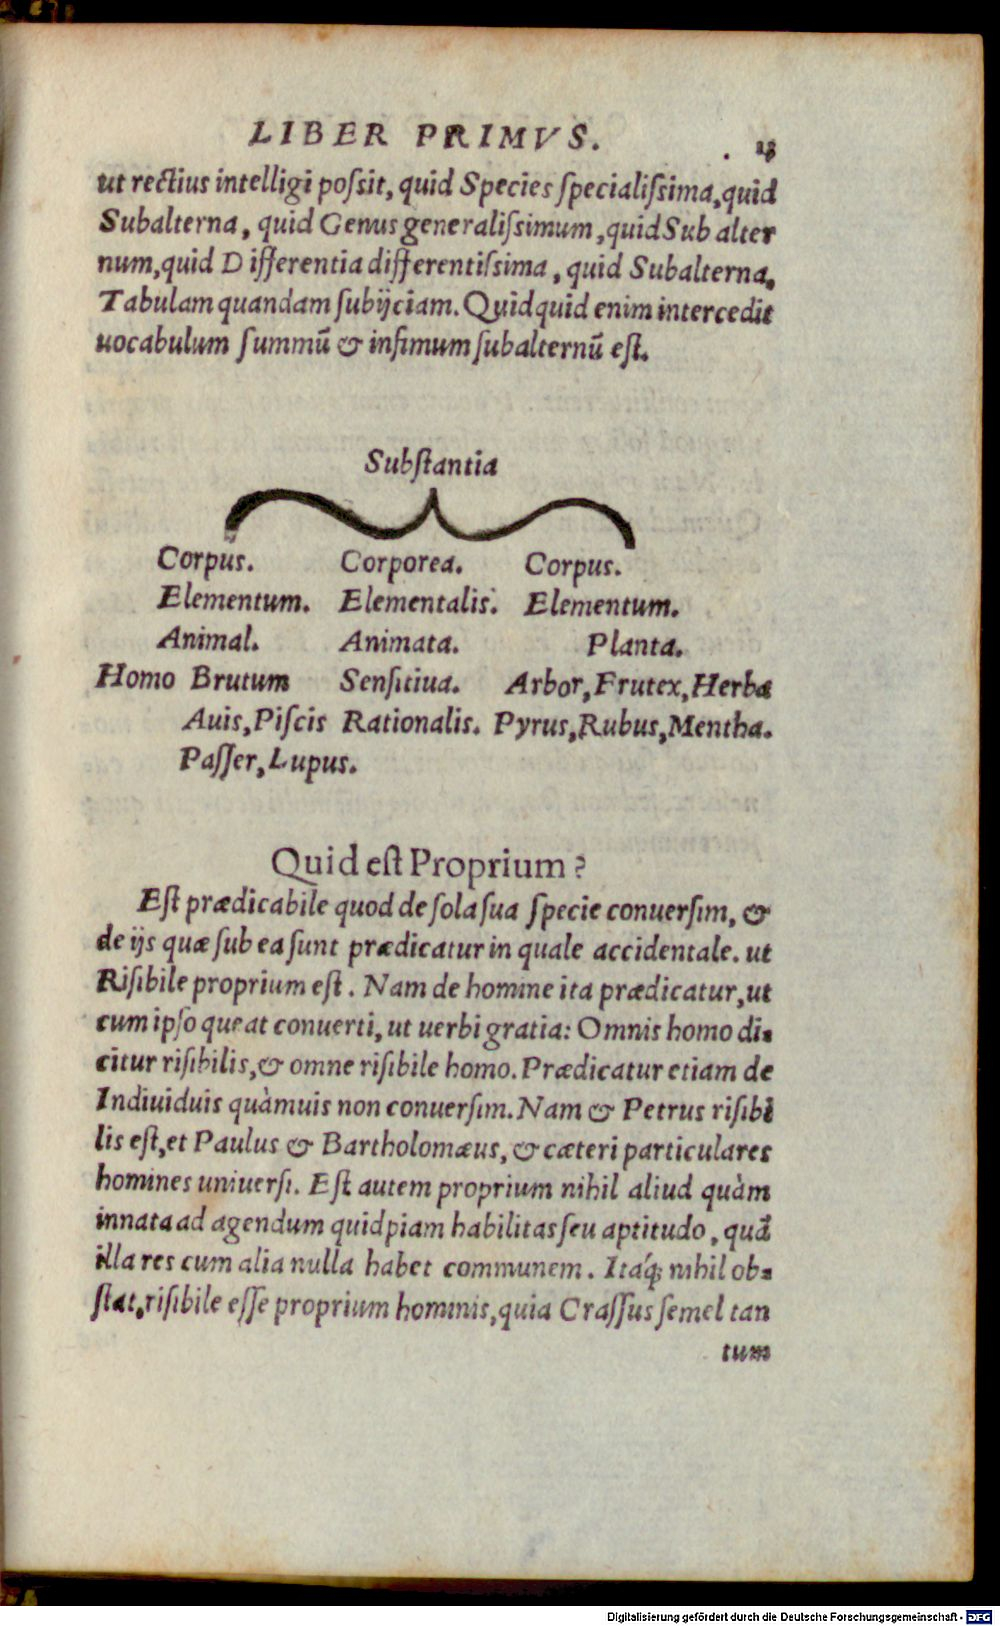 LIBER PRIMVS. 13
ut rectius intelligi poſsit, quid Species ſpecialiſsima, quid
Subalterna, quid Genus generaliſsimum, quid Sub alter
num, quid Differentia differentiſsima, quid Subalterna,
Tabulam quandam ſubijciam. Quidquid enim intercedit
uocabulum ſummũ & infimum ſubalternũ eſt.
Subſtantia
Corpus. Corporea. Corpus.
Elementum. Elementalis. Elementum.
Animal. Animata. Planta.
Homo Brutum Senſitiua. Arbor, Frutex, Herba
Auis, Piſcis Rationalis. Pyrus, Rubus, Mentha.
Paſſer, Lupus.
Quid eſt Proprium?
Eſt prædicabile quod de ſola ſua ſpecie conuerſim, &
de ijs quæ ſub ea ſunt prædicatur in quale accidentale. ut
Riſibile proprium eſt. Nam de homine ita prædicatur, ut
cum ipſo queat conuerti, ut uerbi gratia: Omnis homo di-
citur riſibilis, & omne riſibile homo. Prædicatur etiam de
Indiuiduis quàmuis non conuerſim. Nam & Petrus riſibi
lis eſt, et Paulus & Bartholomæus, & cæteri particulares
homines uniuerſi. Eſt autem proprium nihil aliud quàm
innata ad agendum quidpiam habilitas ſeu aptitudo, quã
illa res cum alia nulla habet communem. Itaq́; nihil ob-
ſtat, riſibile eſſe proprium hominis, quia Craſſus ſemel tan
tum
Digitalisierung gefördert durch die Deutsche Forschungsgemeinschaft - DFG